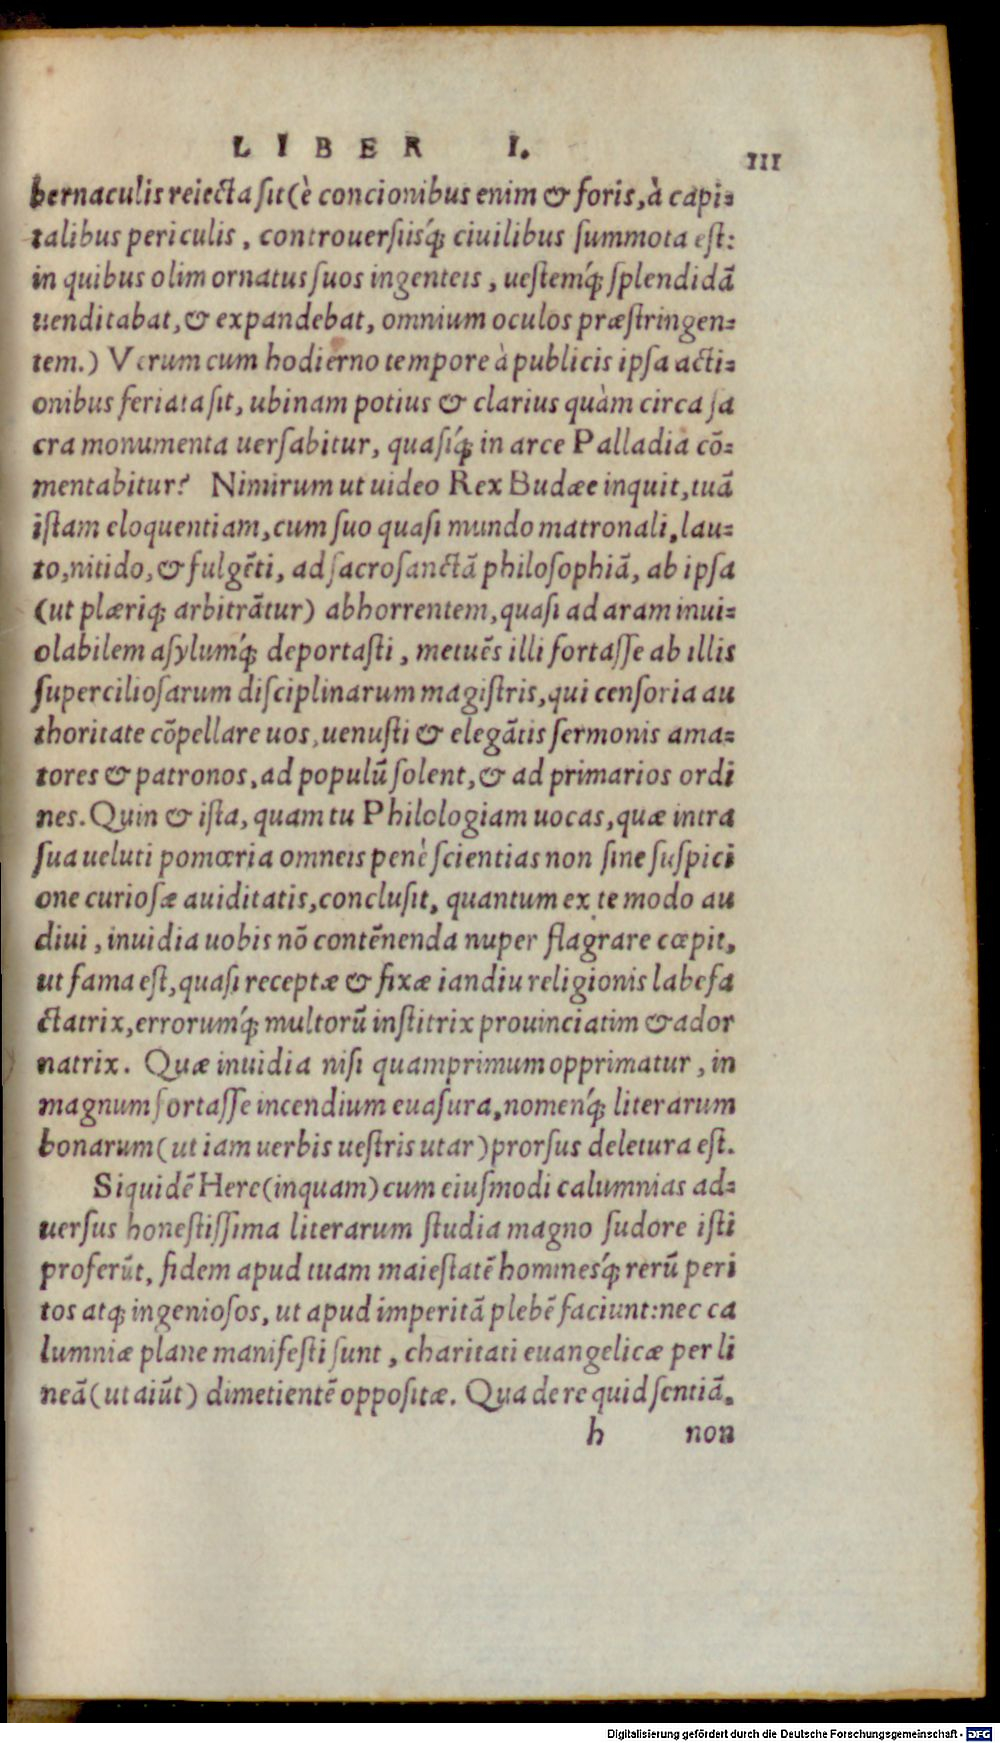 LIBER I. 111
bernaculis reiecta sit (è concionibus enim & foris, à capi=
talibus periculis, controuersiisq́; ciuilibus summota est:
in quibus olim ornatus suos ingenteis, uestemq́; splendidā
uenditabat, & expandebat, omnium oculos præstringen=
tem.) Verum cum hodierno tempore à publicis ipsa acti=
onibus feriata sit, ubinam potius & clarius quàm circa sa
cra monumenta uersabitur, quasiq́; in arce Palladia cō=
mentabitur? Nimirum ut uideo Rex Budæe inquit, tuā
istam eloquentiam, cum suo quasi mundo matronali, lau=
to, nitido, & fulgēti, ad sacrosanctā philosophiā, ab ipsa
(ut plæriq; arbitrātur) abhorrentem, quasi ad aram inui=
olabilem asylumq́; deportasti, metuēs illi fortasse ab illis
superciliosarum disciplinarum magistris, qui censoria au
thoritate cōpellare uos, uenusti & elegātis sermonis ama=
tores & patronos, ad populū solent, & ad primarios ordi
nes. Quin & ista, quam tu Philologiam uocas, quæ intra
sua ueluti pomœria omneis penè scientias non sine suspici
one curiosæ auiditatis, conclusit, quantum ex te modo au
diui, inuidia uobis nō contēnenda nuper flagrare cœpit,
ut fama est, quasi receptæ & fixæ iandiu religionis labefa
ctatrix, errorumq́; multorū institrix prouinciatim & ador
natrix. Quæ inuidia nisi quamprimum opprimatur, in
magnum fortasse incendium euasura, nomenq́; literarum
bonarum (ut iam uerbis uestris utar) prorsus deletura est.
Siquidē Here (inquam) cum eiusmodi calumnias ad=
uersus honestissima literarum studia magno sudore isti
proferūt, fidem apud tuam maiestatē hominesq́; rerū peri
tos atq; ingeniosos, ut apud imperitā plebē faciunt: nec ca
lumniæ plane manifesti sunt, charitati euangelicæ per li
neā (ut aiūt) dimetientē oppositæ. Qua de re quid sentiā,
h non
Digitalisierung gefördert durch die Deutsche Forschungsgemeinschaft - DFG